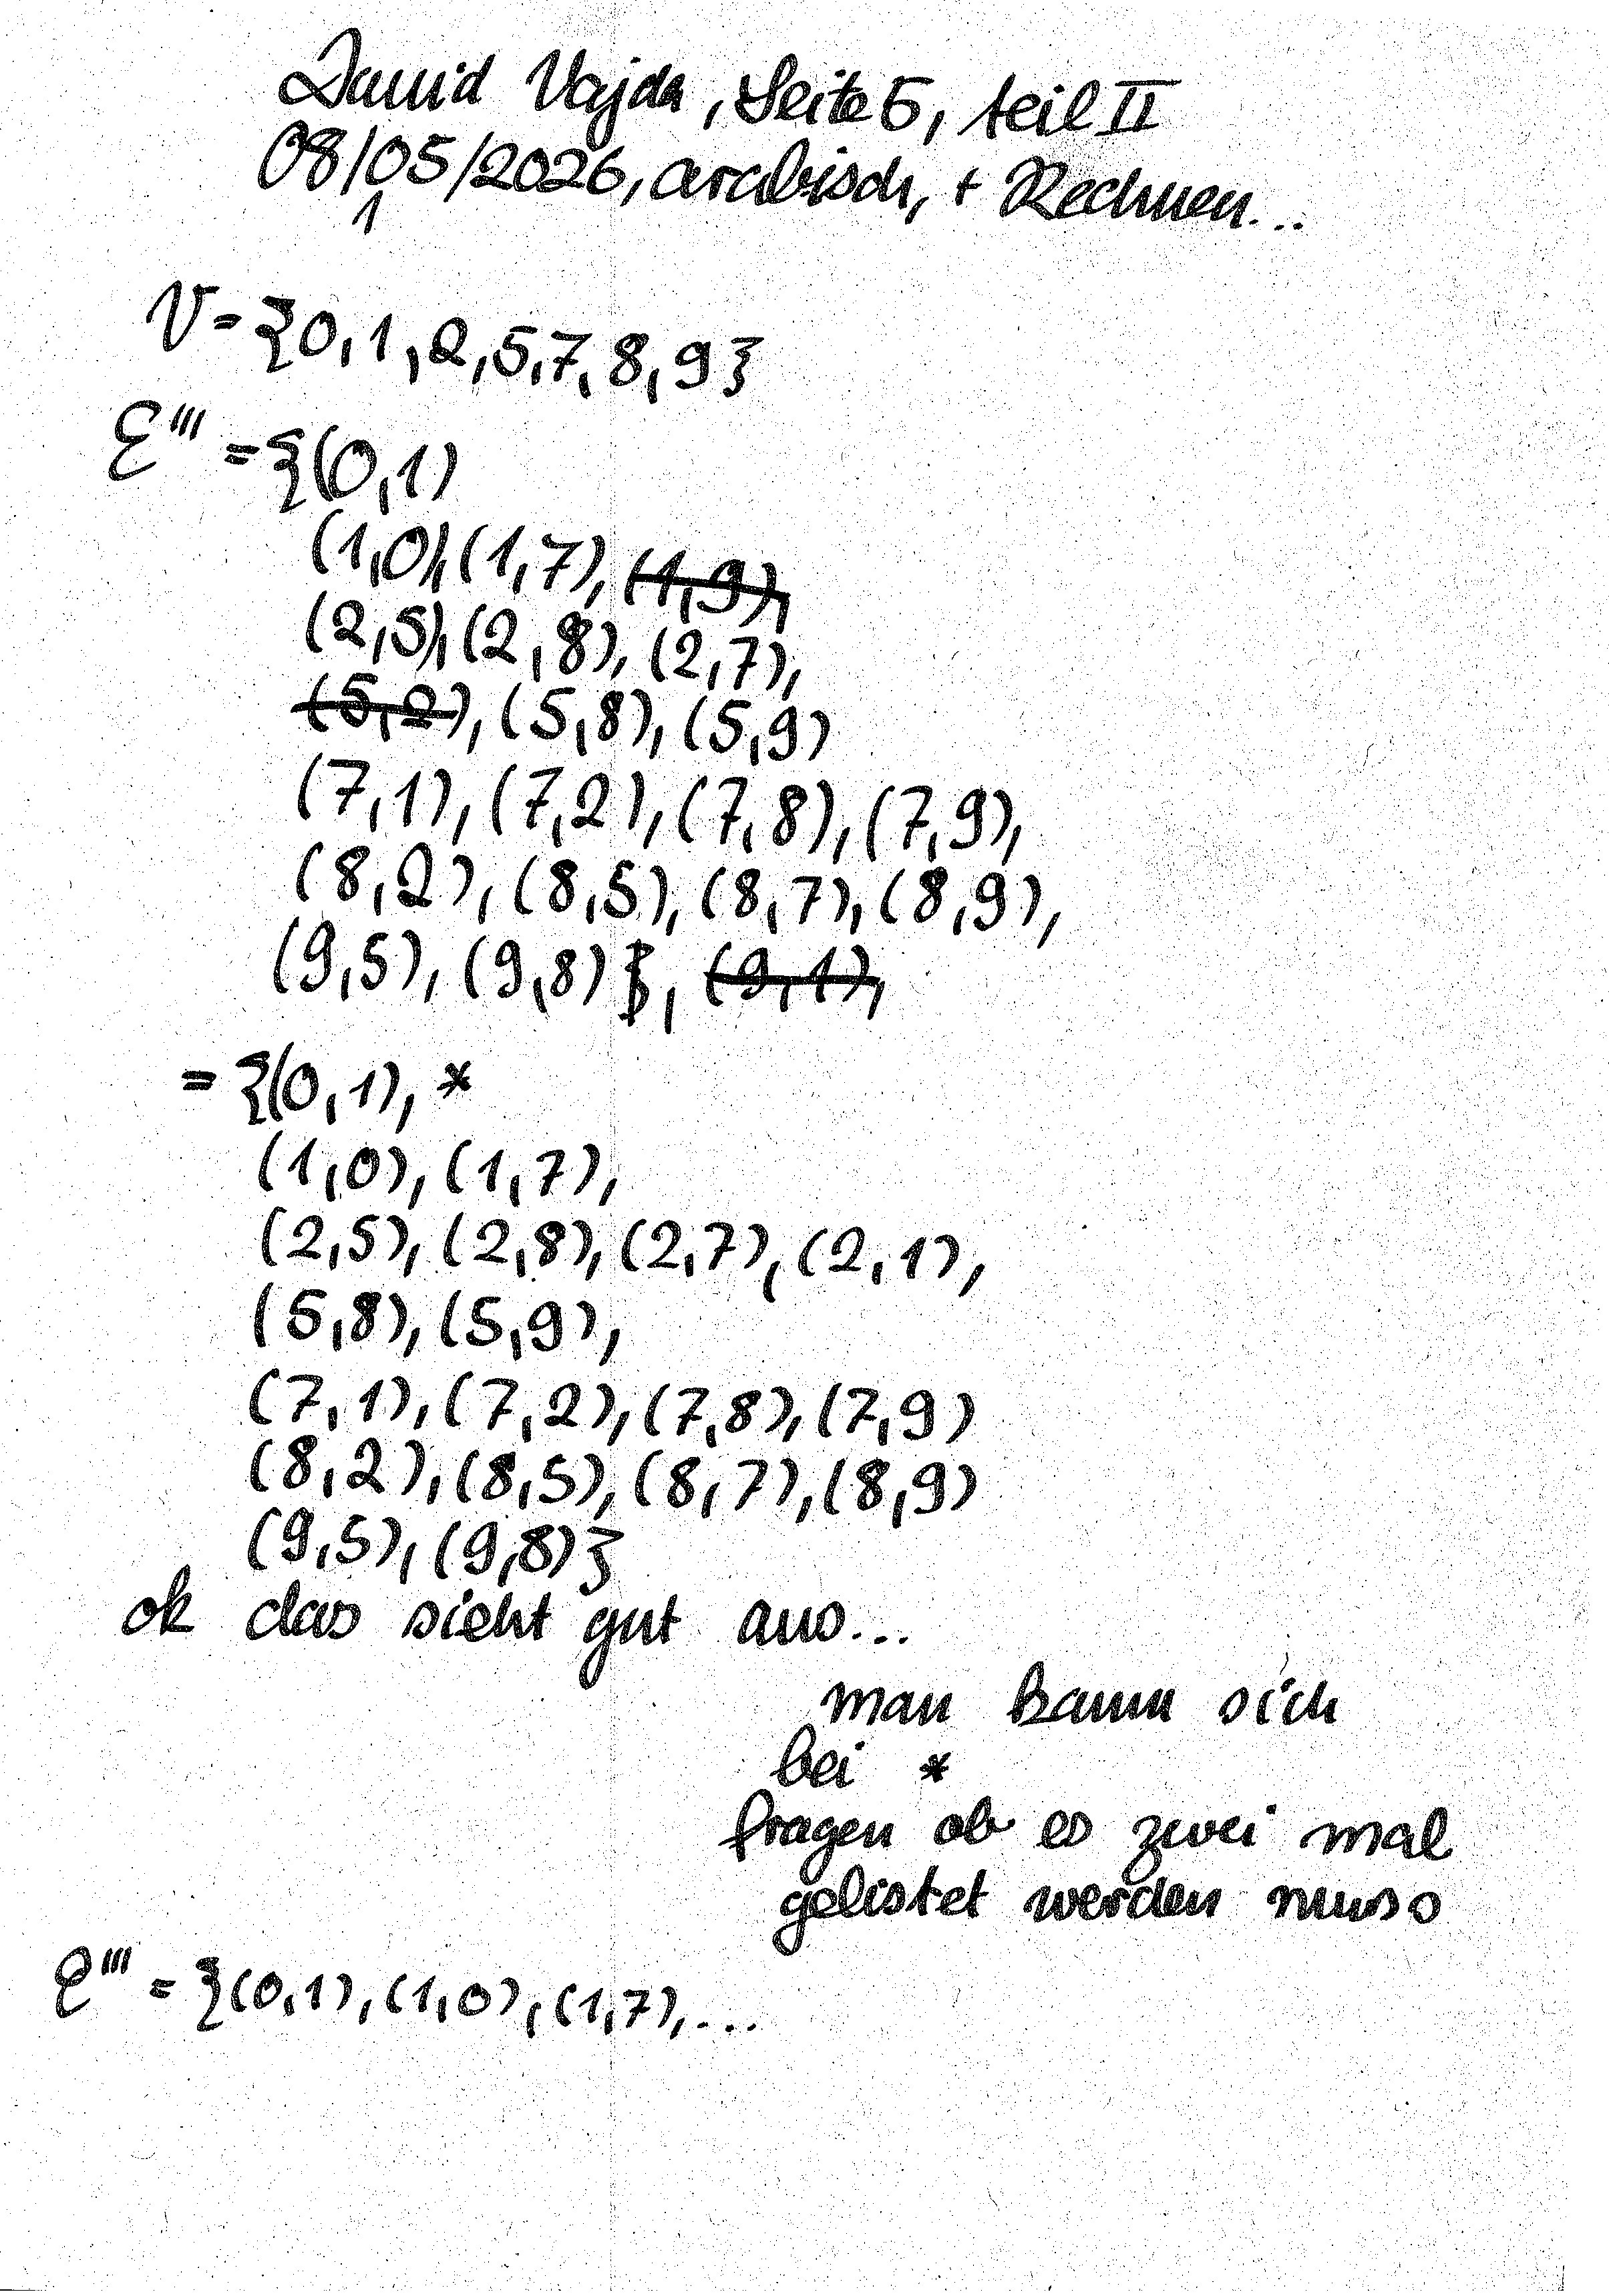 David Vajda, Seite 5, teil II
08/05/2026, arabisch, + Rechnen...
1
V = {0,1,2,5,7,8,9}
E''' = {(0,1)
(1,0),(1,7), (1,9),
(2,5),(2,8), (2,7),
(5,2), (5,8), (5,9)
(7,1), (7,2), (7,8), (7,9),
(8,2), (8,5), (8,7), (8,9),
(9,5), (9,8)}, (9,1),
= {(0,1), *
(1,0), (1,7),
(2,5), (2,8), (2,7), (2,1),
(5,8), (5,9),
(7,1), (7,2), (7,8), (7,9)
(8,2), (8,5), (8,7), (8,9)
(9,5), (9,8)}
ok das sieht gut aus...
man kann sich
bei *
fragen ob es zwei mal
gelistet werden muss
E''' = {(0,1), (1,0), (1,7), ...